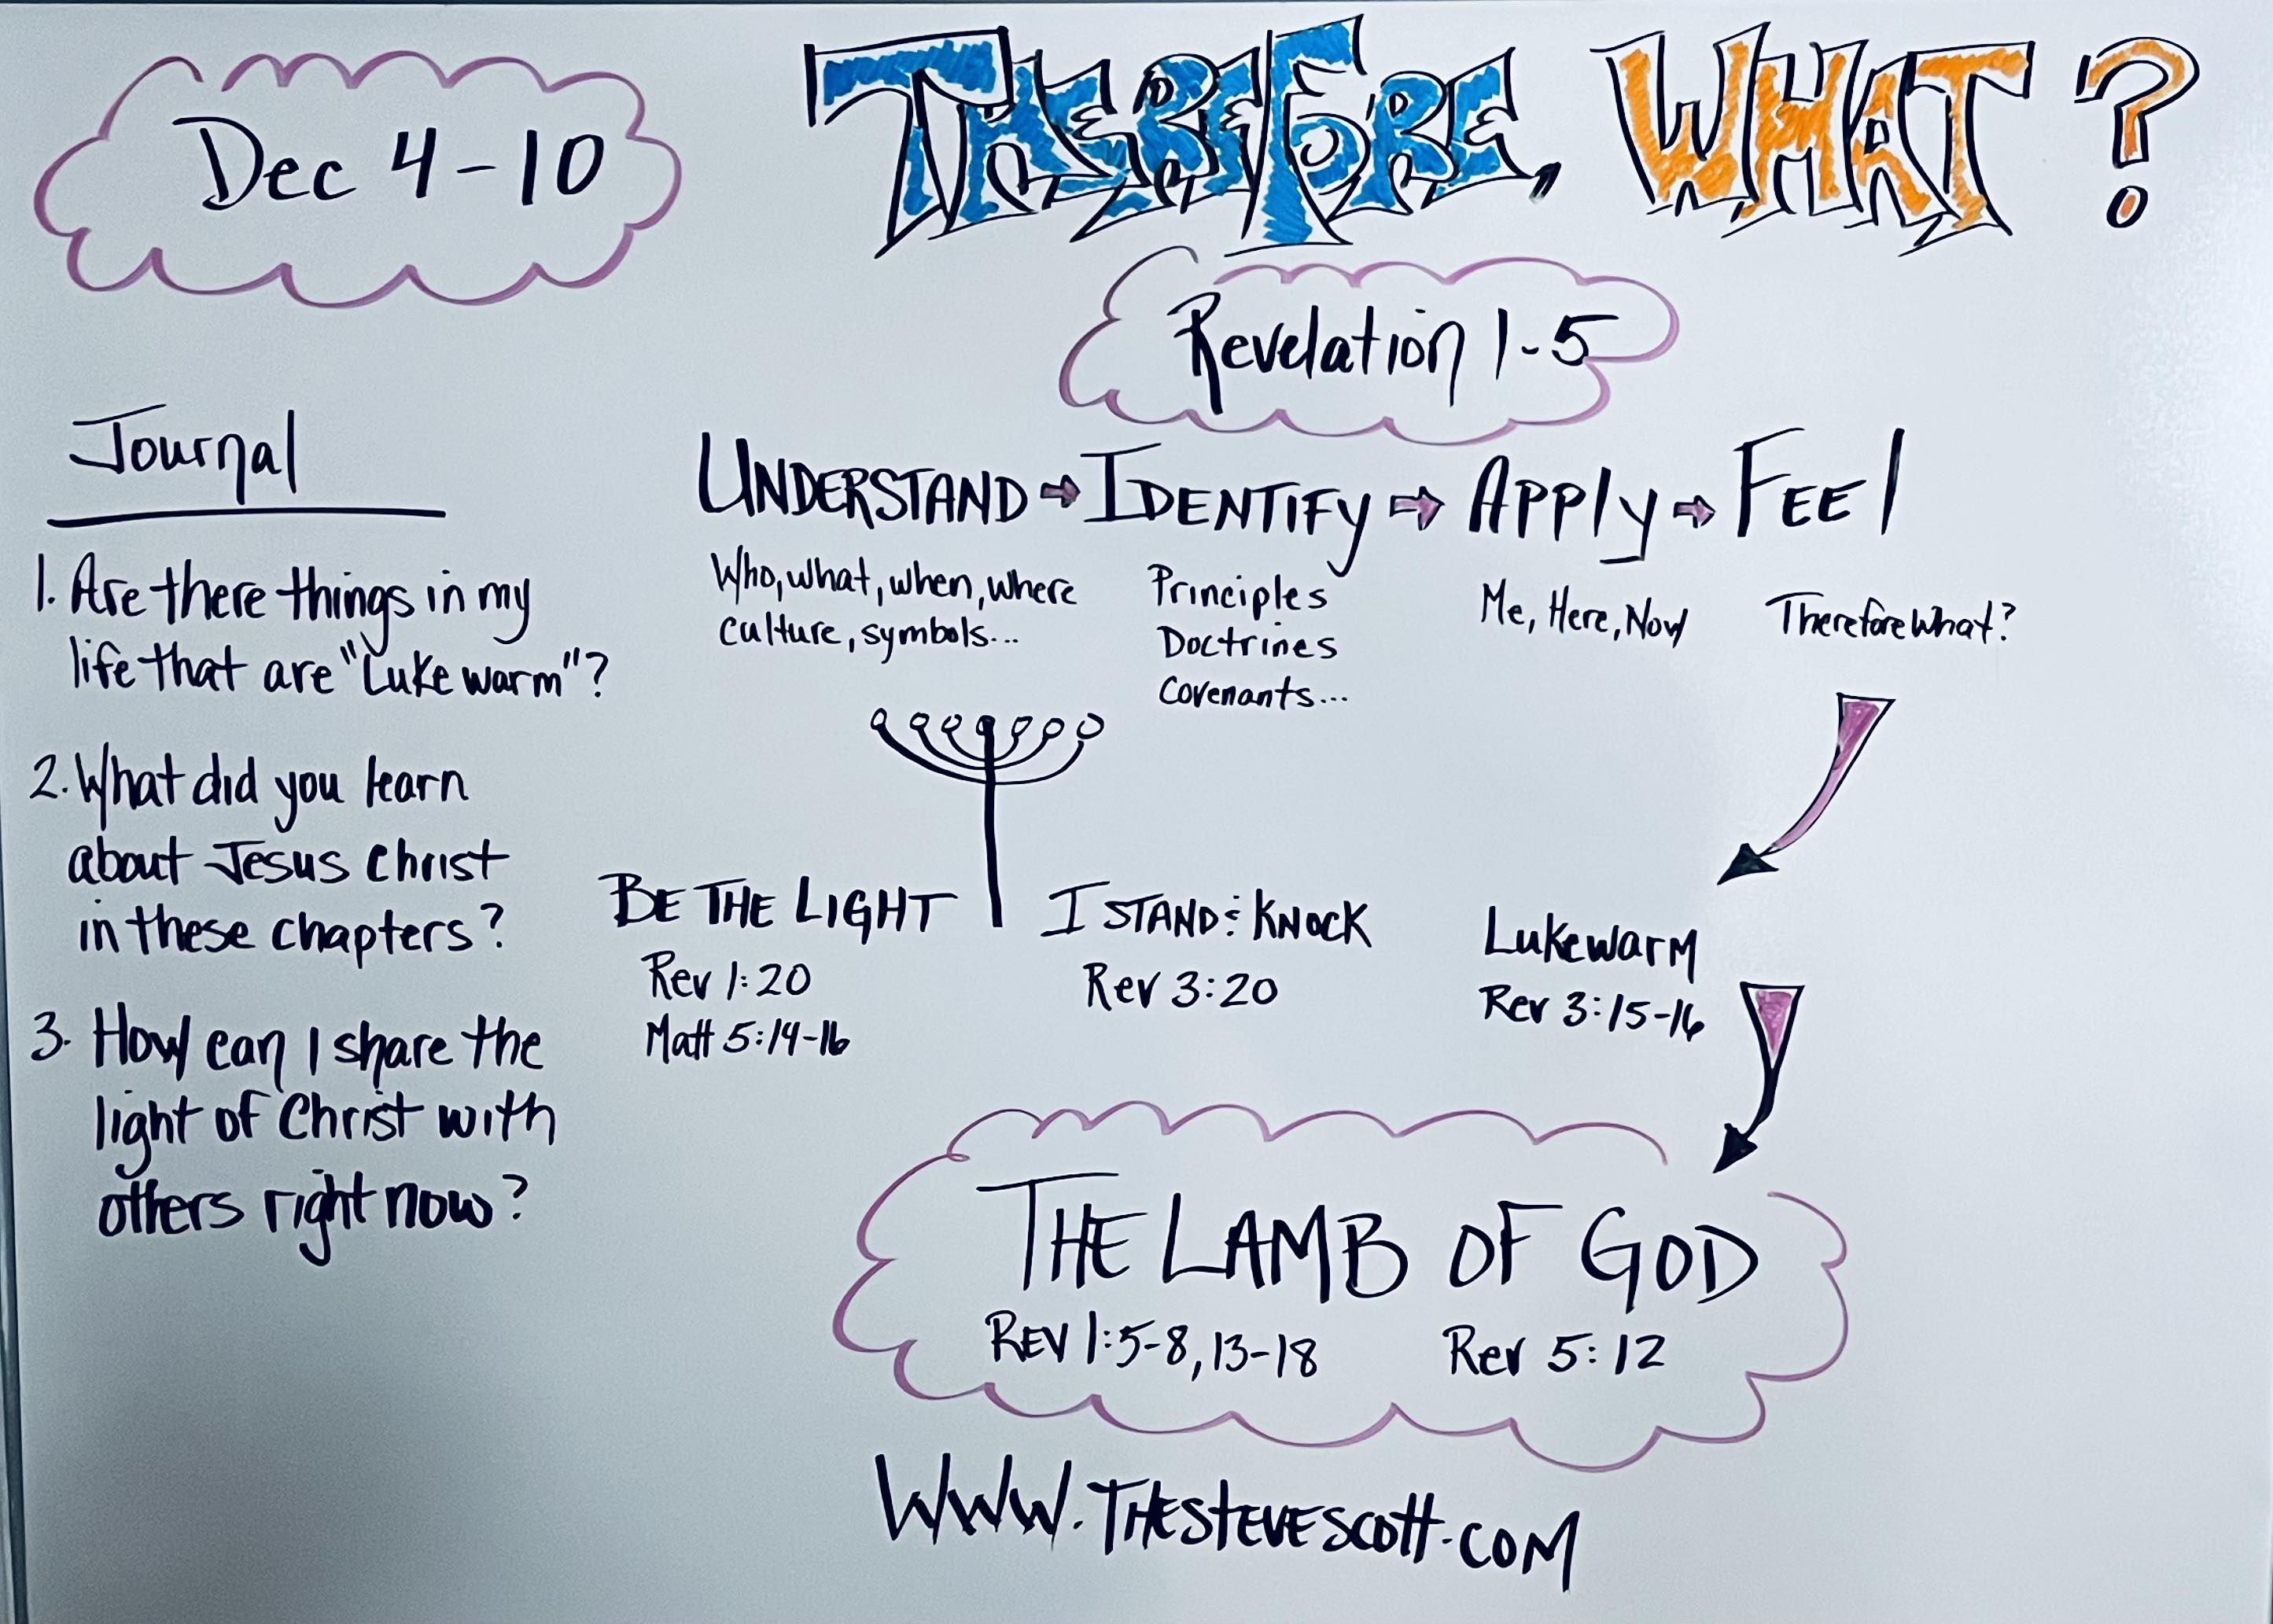 Dec 4-10
THEREFORE, WHAT?
Revelation 1-5
Journal
1. Are there things in my
life that are "Luke warm"?
2. What did you learn
about Jesus Christ
in these chapters?
3. How can I share the
light of Christ with
others right now?
UNDERSTAND → IDENTIFY → APPLY → FEEL
Who, what, when, where
culture, symbols...
Principles
Doctrines
Covenants...
Me, Here, Now
Therefore What?
BE THE LIGHT
Rev 1:20
Matt 5:14-16
I STAND & KNOCK
Rev 3:20
LUKEWARM
Rev 3:15-16
THE LAMB OF GOD
REV 1:5-8, 13-18
Rev 5:12
WWW.THESTEVESCOTT.COM